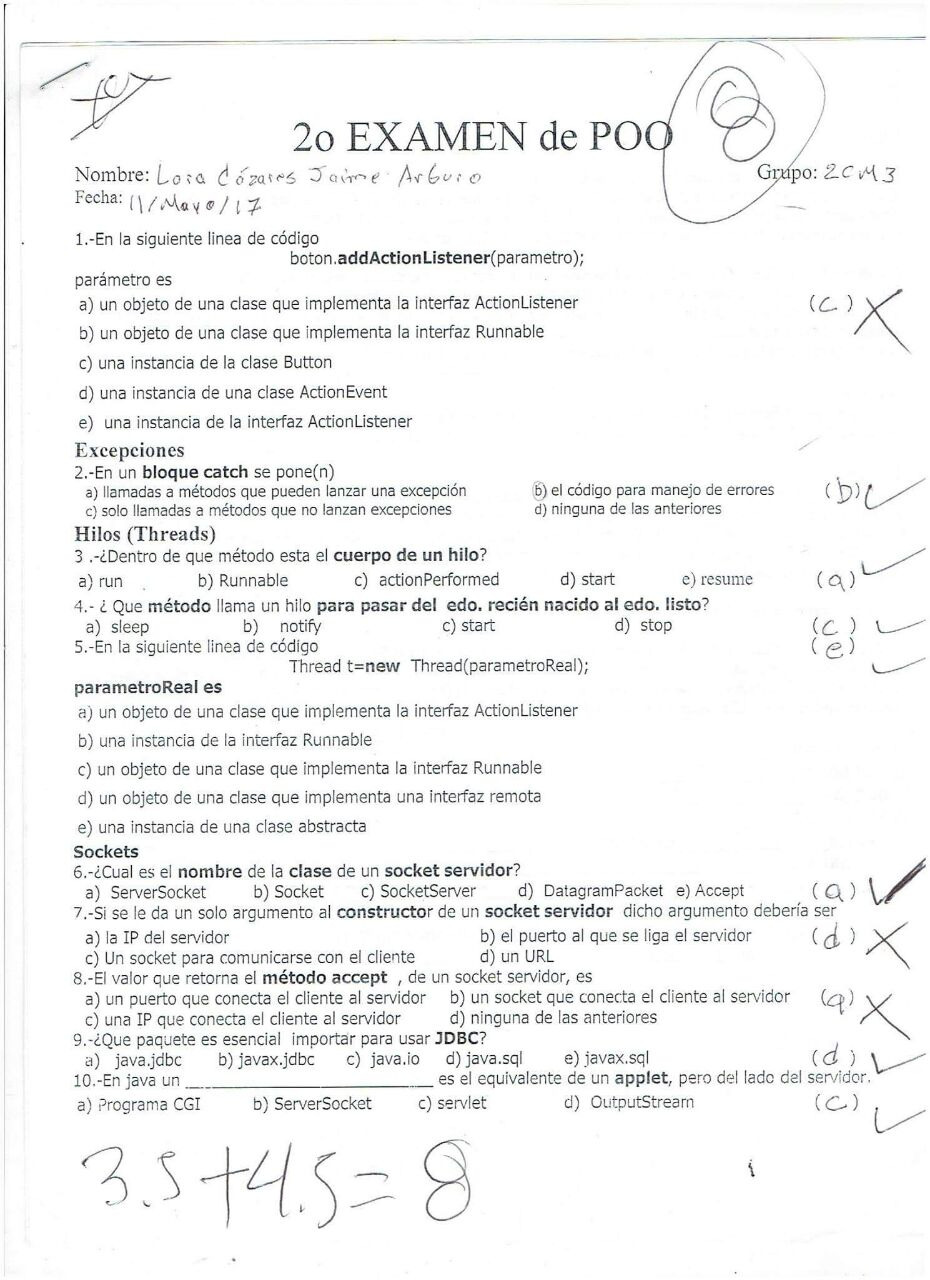 8
2o EXAMEN de POO
Nombre: Lora Cózares Jaime Arturo Grupo: 2CM3
Fecha: 11/Mayo/17
1.-En la siguiente linea de código
boton.addActionListener(parametro);
parámetro es
a) un objeto de una clase que implementa la interfaz ActionListener (c)
b) un objeto de una clase que implementa la interfaz Runnable
c) una instancia de la clase Button
d) una instancia de una clase ActionEvent
e) una instancia de la interfaz ActionListener
Excepciones
2.-En un bloque catch se pone(n)
a) llamadas a métodos que pueden lanzar una excepción b) el código para manejo de errores (b)
c) solo llamadas a métodos que no lanzan excepciones d) ninguna de las anteriores
Hilos (Threads)
3 .-¿Dentro de que método esta el cuerpo de un hilo?
a) run b) Runnable c) actionPerformed d) start e) resume (a)
4.- ¿ Que método llama un hilo para pasar del edo. recién nacido al edo. listo?
a) sleep b) notify c) start d) stop (c)
5.-En la siguiente linea de código (e)
Thread t=new Thread(parametroReal);
parametroReal es
a) un objeto de una clase que implementa la interfaz ActionListener
b) una instancia de la interfaz Runnable
c) un objeto de una clase que implementa la interfaz Runnable
d) un objeto de una clase que implementa una interfaz remota
e) una instancia de una clase abstracta
Sockets
6.-¿Cual es el nombre de la clase de un socket servidor?
a) ServerSocket b) Socket c) SocketServer d) DatagramPacket e) Accept (a)
7.-Si se le da un solo argumento al constructor de un socket servidor dicho argumento debería ser
a) la IP del servidor b) el puerto al que se liga el servidor (d)
c) Un socket para comunicarse con el cliente d) un URL
8.-El valor que retorna el método accept , de un socket servidor, es
a) un puerto que conecta el cliente al servidor b) un socket que conecta el cliente al servidor (a)
c) una IP que conecta el cliente al servidor d) ninguna de las anteriores
9.-¿Que paquete es esencial importar para usar JDBC?
a) java.jdbc b) javax.jdbc c) java.io d) java.sql e) javax.sql (d)
10.-En java un ____________________ es el equivalente de un applet, pero del lado del servidor.
a) Programa CGI b) ServerSocket c) servlet d) OutputStream (c)
3.5+4.5=8